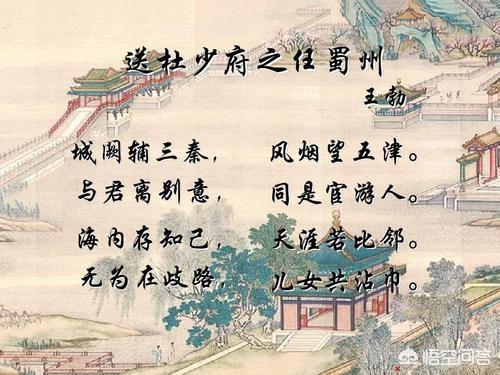 送杜少府之任蜀州
王勃
城阙辅三秦， 风烟望五津。
与君离别意， 同是宦游人。
海内存知己， 天涯若比邻。
无为在歧路， 儿女共沾巾。
悟空问答